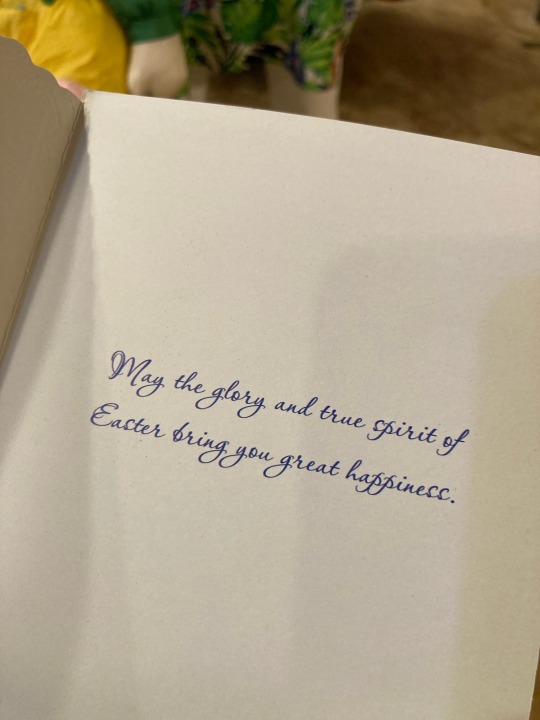 May the glory and true spirit of
Easter bring you great happiness.